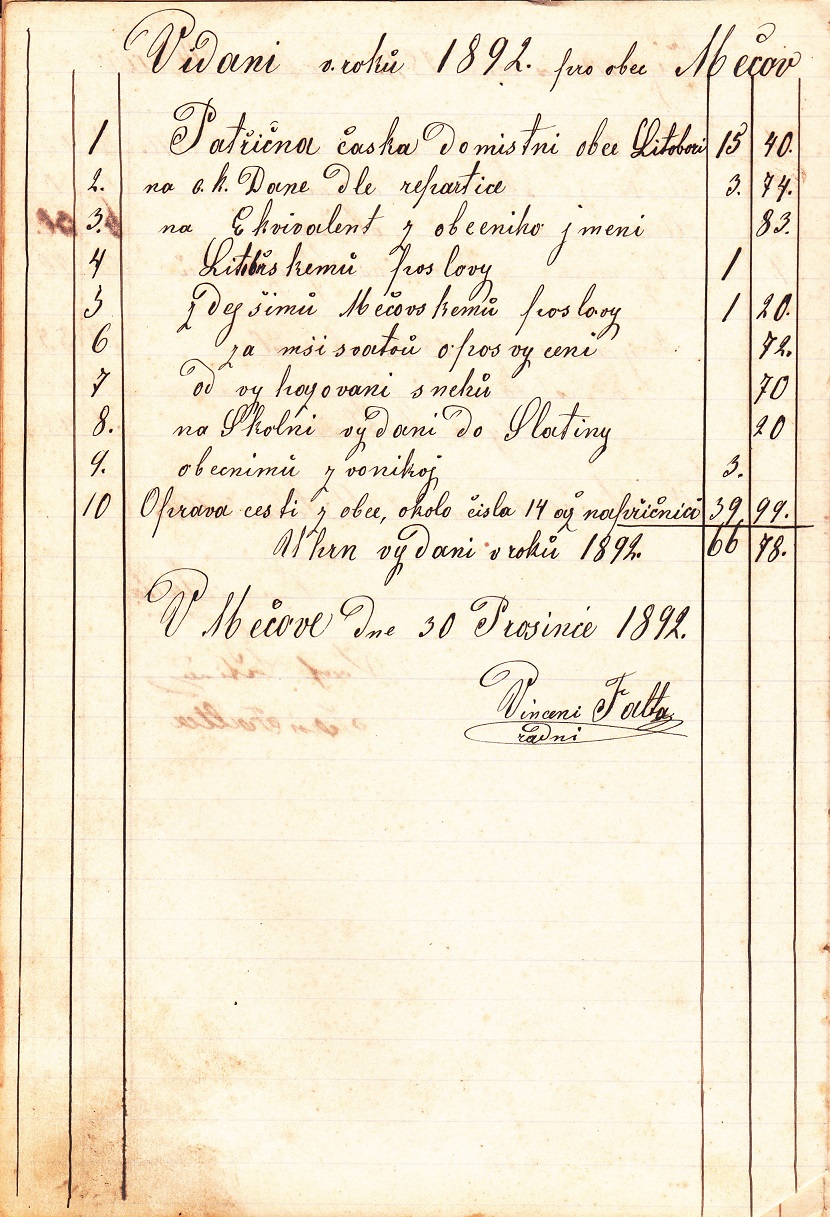 Vidani v. roků 1892. pro obec Mečov
1 Patřična časka do mistni obce Litoboři 15 40.
2. na c. k. Dane dle repartice 3. 74.
3. na Ekvivalent z obecniho jmeni 83.
4 Litobřskemů poslovy 1
5 zdejšimů Mečovskemů poslovy 1 20.
6 za mši svatoů o posvyceni 72.
7 od vyhazovani sneků 70
8. na Školni vydani do Slatiny 20
9. obecnimů zvonikoj 3.
10 Oprava cesti z obce, okolo čisla 14 až na příčnici 39 99.
Uhrn vydani v roků 1892. 66 78.
V Mečove dne 30 Prosince 1892.
Vincenc Falta
radni